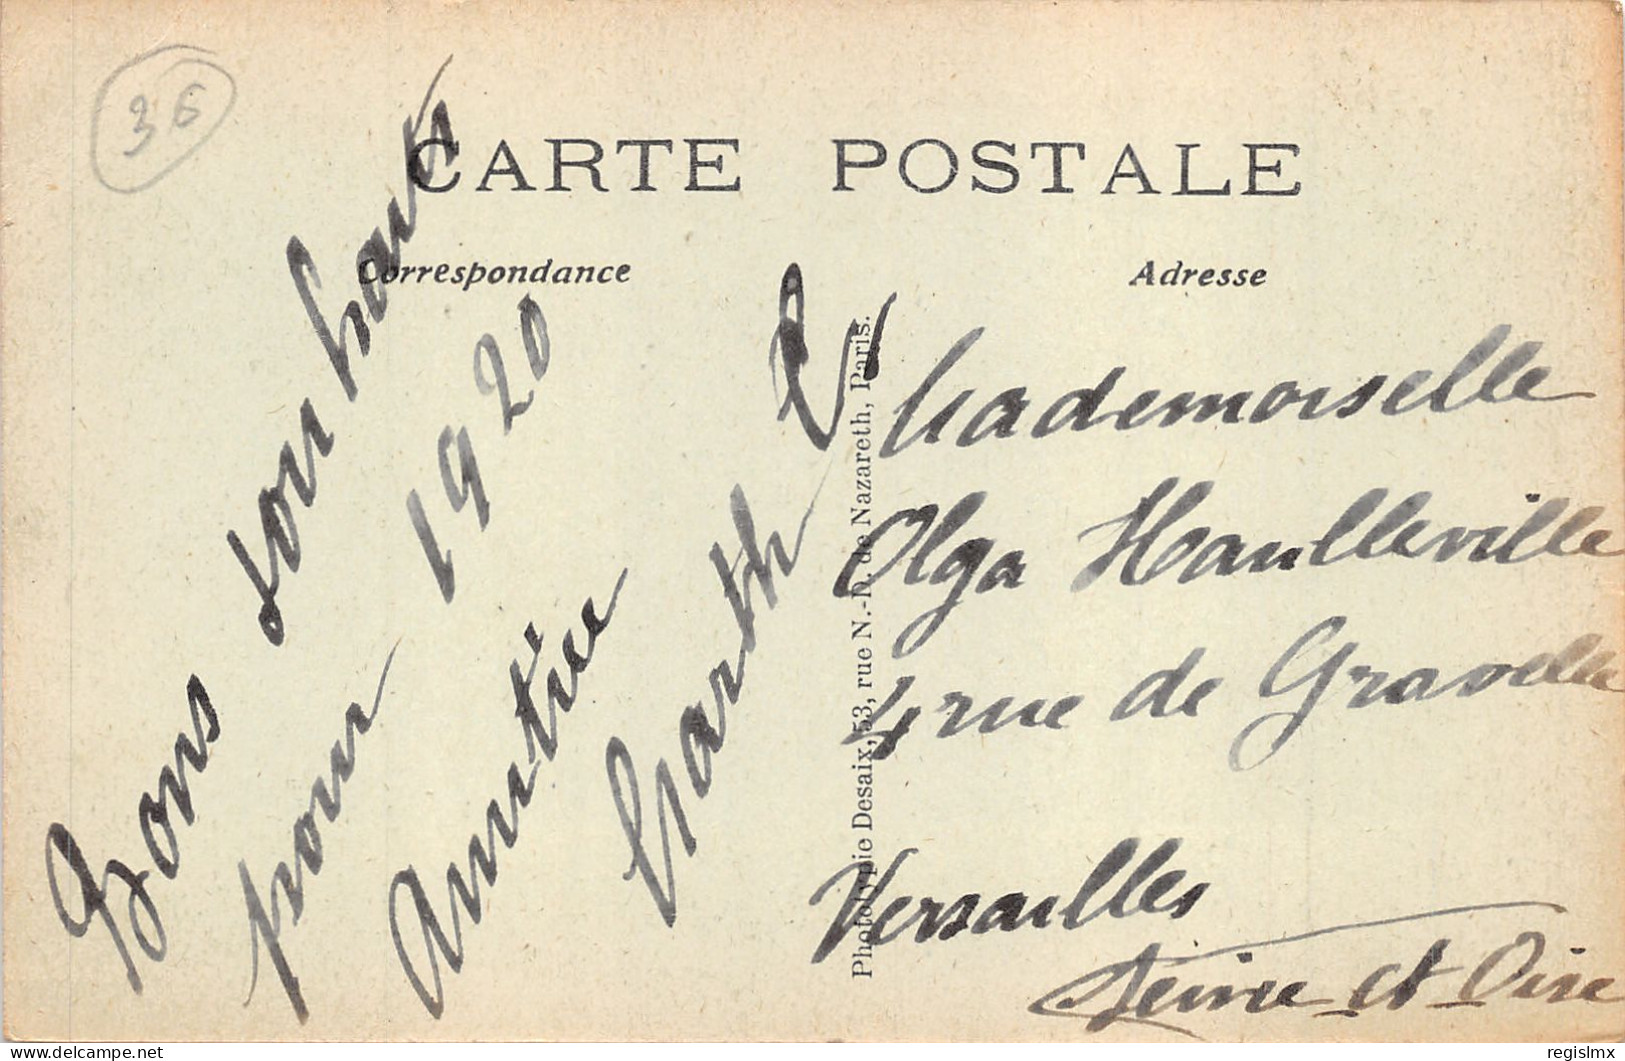 36
CARTE POSTALE
Correspondance
Adresse
Bons souhaits
pour 1920
Amitiés
Marthe
Photolypie Desaix, 53, rue N.-D. de Nazareth, Paris.
Mademoiselle
Olga Haulleville
4 rue de Gravelle
Versailles
Seine et Oise
delcampe.net
regislmx